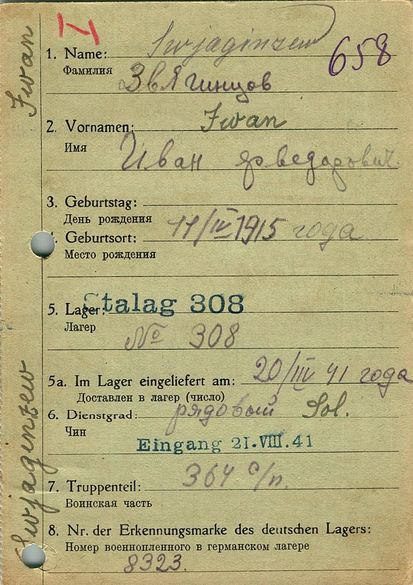 Swjaginzew
1. Name:
658
Фамилия
Звягинцов
2. Vornamen: Iwan
Имя
Иван Фведарович
3. Geburtstag:
День рождения
11/IV 1915 года
4. Geburtsort:
Место рождения
5. Lager: Stalag 308
Лагер
№ 308
5a. Im Lager eingeliefert am: 20/VIII 41 года
Доставлен в лагер (число)
6. Dienstgrad: рядовый Sol.
Чин
Eingang 21. VIII. 41
7. Truppenteil: 364 с/п.
Воинская часть
8. Nr. der Erkennungsmarke des deutschen Lagers:
Номер военнопленного в германском лагере
8323.
Iwan
Swjaginzew